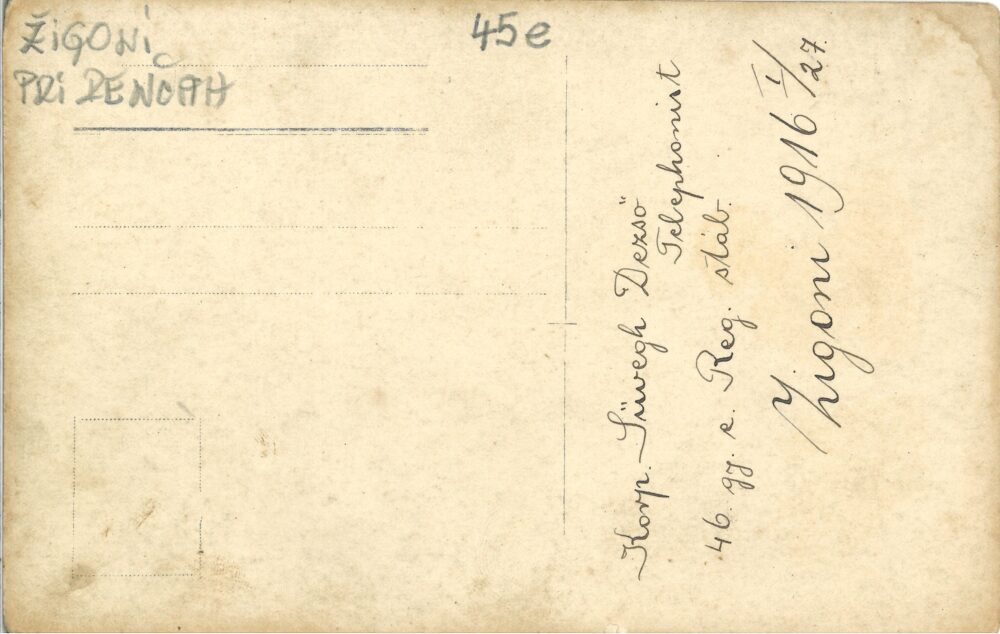 ŽIGONI,
PRI RENČAH
45e
Korp. Süvegh Dezső
Telephonist
46. gy. e. Reg. stáb.
Zigoni 1916 I/27.